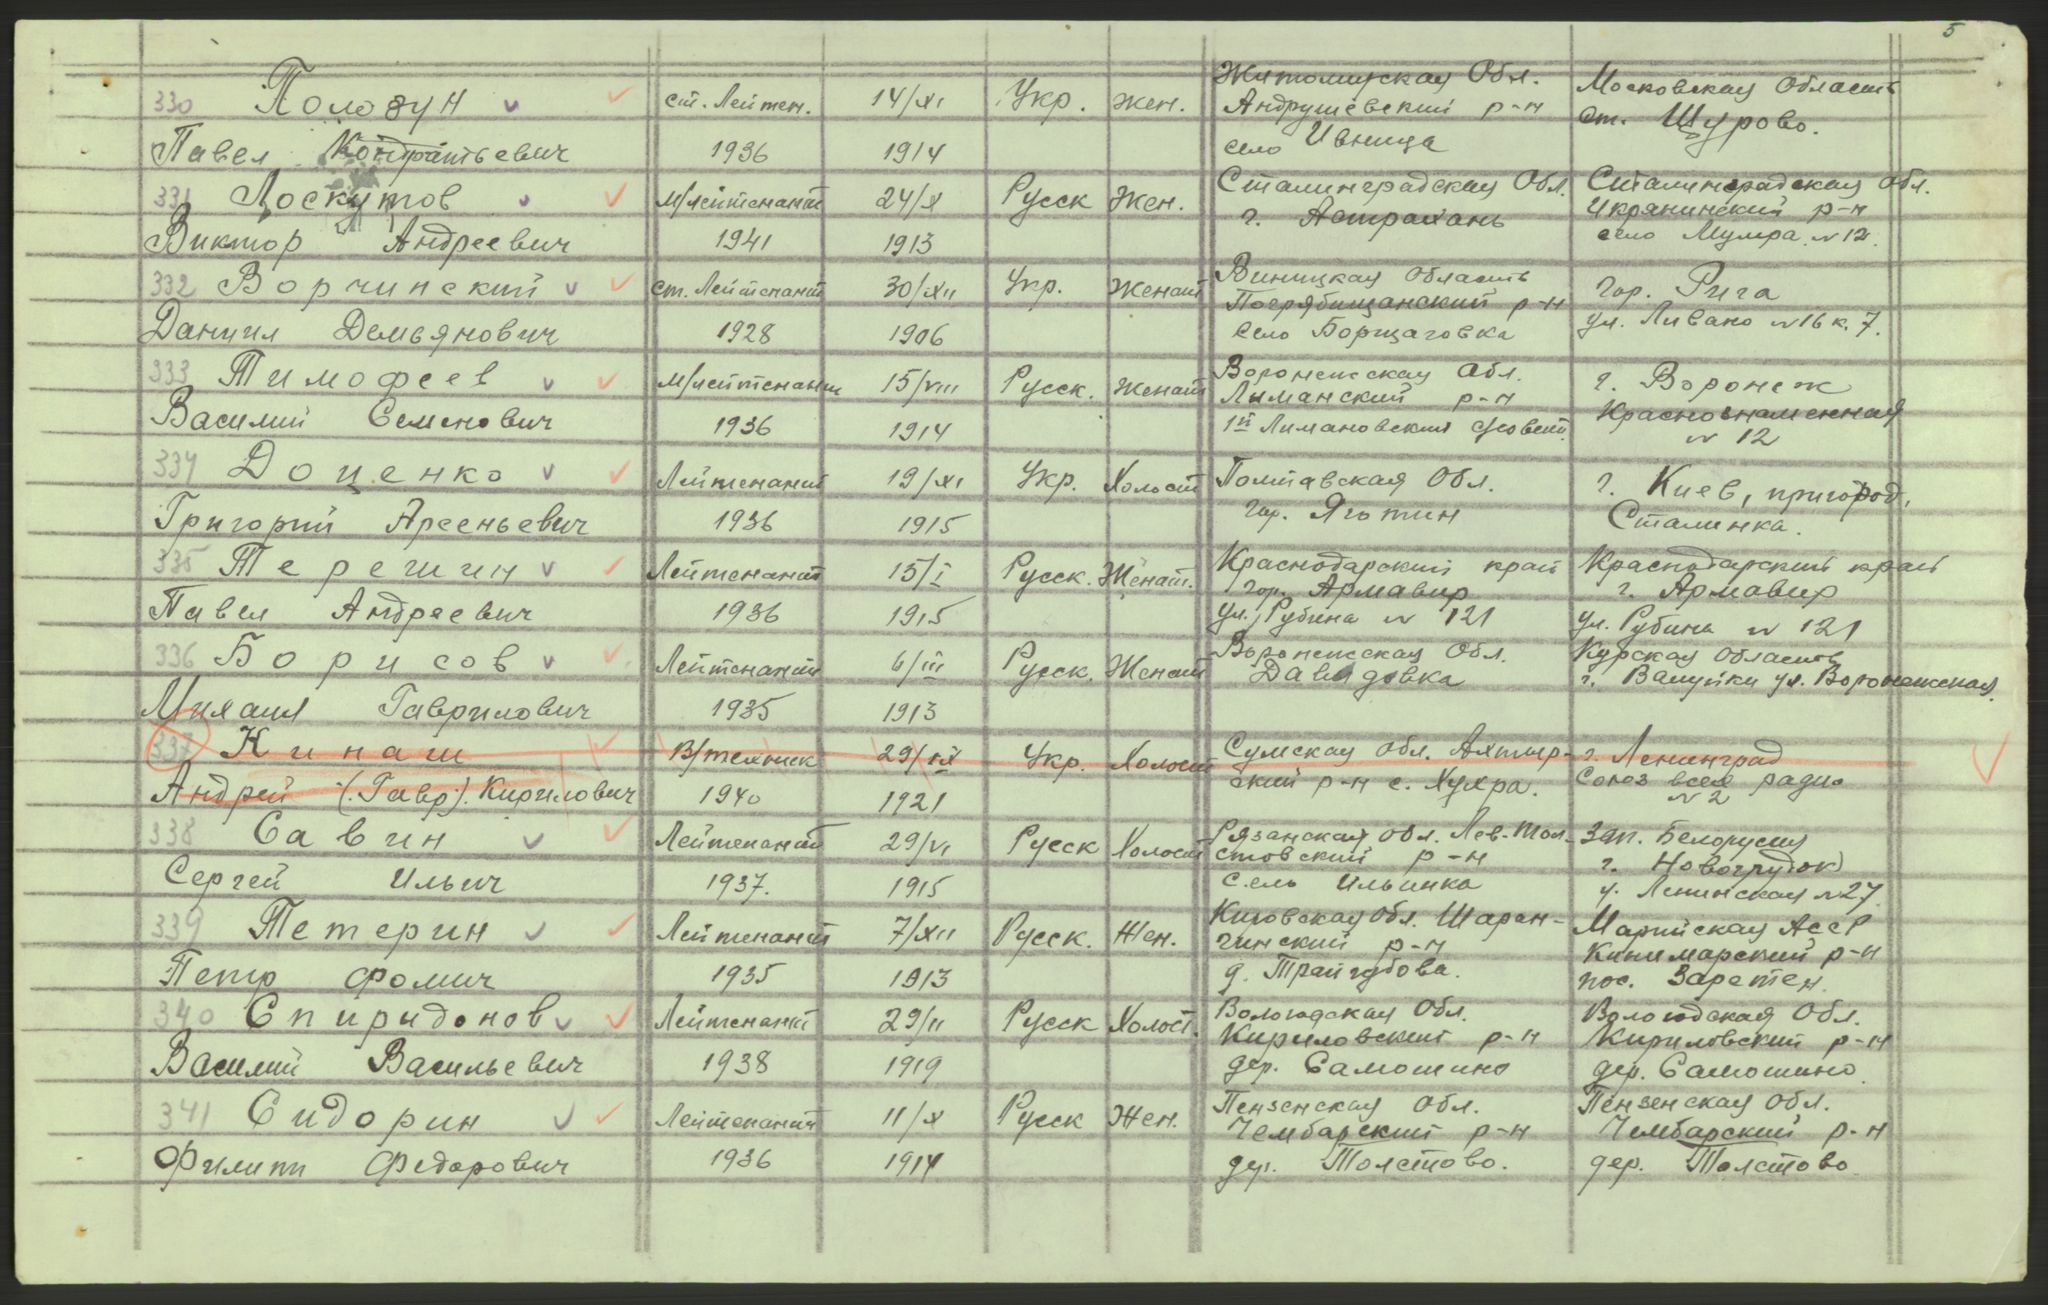 5
330 Полозун ст. Лейтен. 14/XI Укр. жен. Житомирская Обл. Московская Область
Андрушевский р-н ст. Щурово.
Павел Кондратьевич 1936 1914 село Ивница
331 Лоскутов м/лейтенант 24/X Русск Жен. Сталинградская Обл. Сталинградская Обл.
г. Астрахань Икрянинский р-н
Виктор Андреевич 1941 1913 село Мумра №12.
332 Ворчинский ст. Лейтенант 30/XII Укр. Женат Виницкая Область гор. Рига
Погрябищанский р-н ул. Ливано №16 к. 7.
Даниил Демьянович 1928 1906 село Борщаговка
333 Тимофеев м/лейтенант 15/VIII Русск. Женат Воронежская Обл. г. Воронеж
Лиманский р-н Краснознаменная
Василий Семенович 1936 1914 1й Лимановский с/совет. №12
334 Доценко Лейтенант 19/XI Укр. Холост Полтавская Обл. г. Киев, пригород,
Григорий Арсеньевич 1936 1915 гор. Яготин Сталинка.
335 Терешин Лейтенант 15/I Русск. Женат. Краснодарский край Краснодарский край
гор. Армавир г. Армавир
Павел Андреевич 1936 1915 ул. Рубина № 121 ул. Рубина № 121
336 Борисов Лейтенант 6/III Русск. Женат Воронежская Обл. Курская Область
Давидовка г. Валуйки ул. Воронежская.
Михаил Гаврилович 1935 1913
337 Кинаш В/техник 29/IX Укр. Холост Сумская обл. Ахтыр- г. Ленинград
ский р-н с. Хухра. Союз всея радио
Андрей (Гавр). Кирилович 1940 1921 №2
338 Савин Лейтенант 29/VI Русск Холост Рязанская обл. Лев-Тол- Зап. Белорусия
стовский р-н г. Новогрудок
Сергей Ильич 1937. 1915 село Ильинка у. Ленинская №27.
339 Тетерин Лейтенант 7/XII Русск. Жен. Кировская обл. Шаран- Марийская АССР
гинский р-н Кинимарский р-н
Петр Фомич 1935 1913 д. Трайгубова. пос.
340 Спиридонов Лейтенант 29/II Русск Холост. Вологодская Обл. Вологодская Обл.
Кириловский р-н Кириловский р-н
Василий Васильевич 1938 1919 дер. Самошино дер. Самошино.
341 Сидорин Лейтенант 11/X Русск Жен. Пензенская Обл. Пензенская Обл.
Чембарский р-н Чембарский р-н
Филипп Федорович 1936 1914 дер. Толстово. дер. Толстово.